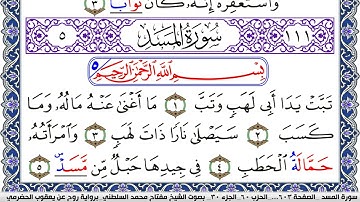 وَاسْتَغْفِرْهُ إِنَّهُ كَانَ تَوَّابًا ٣
١١١ سُورَةُ الْمَسَدِ ٥
بِسْمِ اللَّهِ الرَّحْمَٰنِ الرَّحِيمِ
تَبَّتْ يَدَا أَبِي لَهَبٍ وَتَبَّ ١ مَا أَغْنَىٰ عَنْهُ مَالُهُ وَمَا
كَسَبَ ٢ سَيَصْلَىٰ نَارًا ذَاتَ لَهَبٍ ٣ وَامْرَأَتُهُ
حَمَّالَةُ الْحَطَبِ ٤ فِي جِيدِهَا حَبْلٌ مِّن مَّسَدٍ ٥
سورة المسد الصفحة ٦٠٣ الحزب ٦٠ الجزء ٣٠ بصوت الشيخ مفتاح محمد السلطني برواية روح عن يعقوب الحضرمي